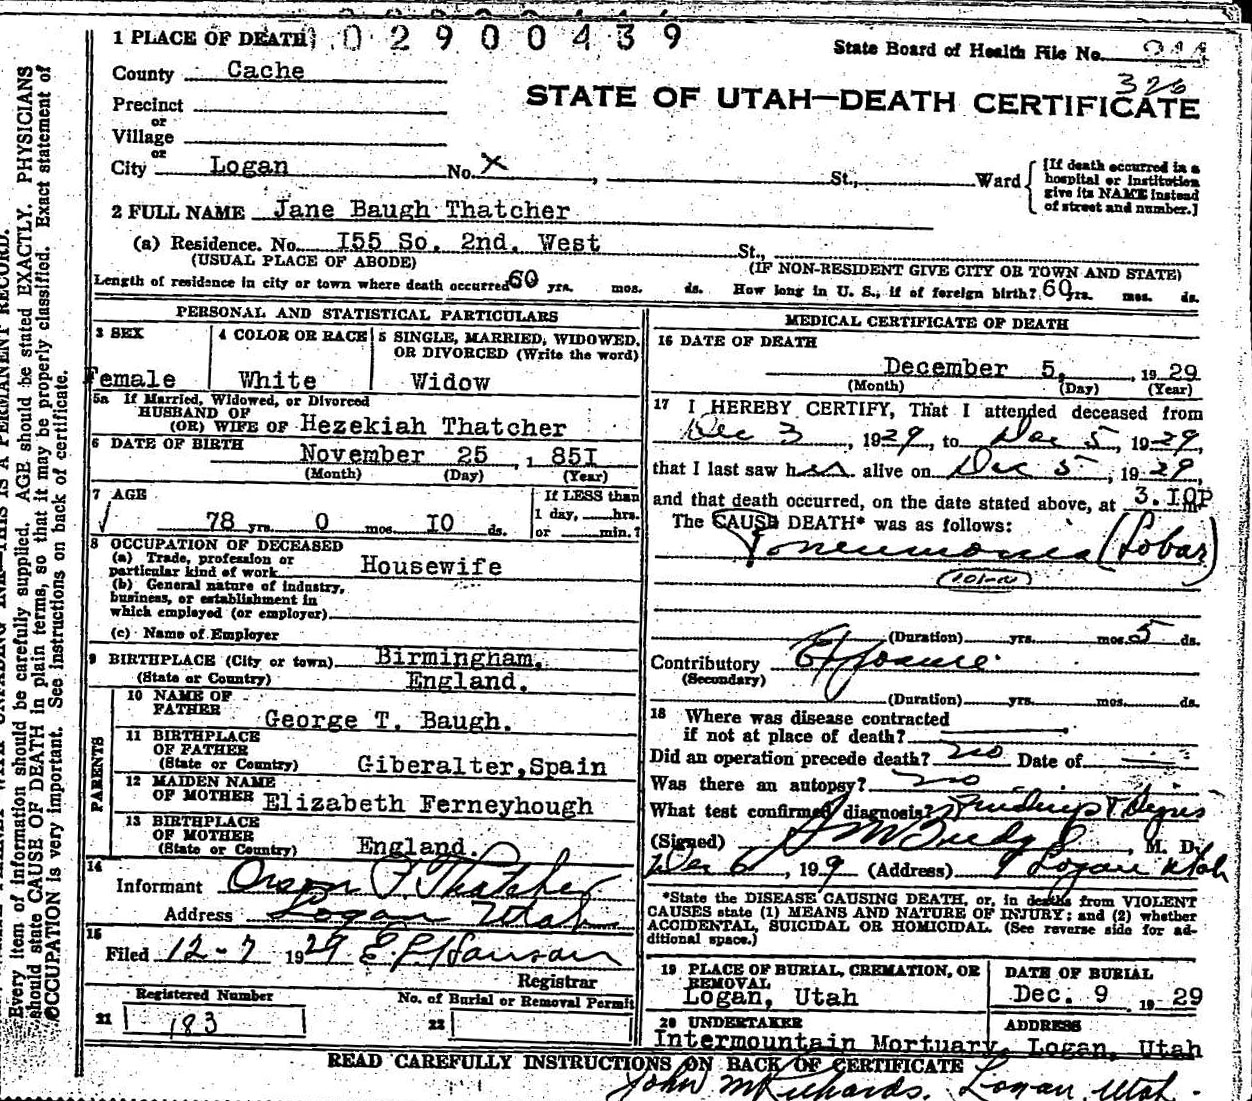 1 PLACE OF DEATH 0 2 9 0 0 4 3 9
State Board of Health File No.
County Cache
326
STATE OF UTAH—DEATH CERTIFICATE
Precinct
or
Village
or
City Logan No. X , St., Ward
[If death occurred in a
hospital or institution
give its NAME instead
of street and number.]
2 FULL NAME Jane Baugh Thatcher
(a) Residence. No. I55 So. 2nd. West St.,
(USUAL PLACE OF ABODE) (IF NON-RESIDENT GIVE CITY OR TOWN AND STATE)
Length of residence in city or town where death occurred 60 yrs. mos. ds. How long in U. S., if of foreign birth? 60 yrs. mos. ds.
PERSONAL AND STATISTICAL PARTICULARS
3 SEX
Female
4 COLOR OR RACE
White
5 SINGLE, MARRIED, WIDOWED,
OR DIVORCED (Write the word)
Widow
5a If Married, Widowed, or Divorced
HUSBAND OF
(OR) WIFE OF Hezekiah Thatcher
6 DATE OF BIRTH
November 25 , 1 85I
(Month) (Day) (Year)
7 AGE
78 yrs. 0 mos. I0 ds.
If LESS than
1 day, hrs.
or min.?
8 OCCUPATION OF DECEASED
(a) Trade, profession or
particular kind of work Housewife
(b) General nature of industry,
business, or establishment in
which employed (or employer)
(c) Name of Employer
9 BIRTHPLACE (City or town) Birmingham,
(State or Country) England.
PARENTS
10 NAME OF
FATHER George T. Baugh.
11 BIRTHPLACE
OF FATHER
(State or Country) Giberalter,Spain
12 MAIDEN NAME
OF MOTHER Elizabeth Ferneyhough
13 BIRTHPLACE
OF MOTHER
(State or Country) England.
14
Informant Orson P. Thatcher
Address Logan Utah
15
Filed 12-7 1929 E. L. Hanson
Registrar
Registered Number
21 183
No. of Burial or Removal Permit
22
MEDICAL CERTIFICATE OF DEATH
16 DATE OF DEATH
December 5, , 19 29
(Month) (Day) (Year)
17 I HEREBY CERTIFY, That I attended deceased from
Dec 3 , 1929, to Dec 5 , 1929,
that I last saw her alive on Dec 5 , 1929,
and that death occurred, on the date stated above, at 3.I0P m.
The CAUSE DEATH* was as follows:
Pneumonia (Lobar)
(Duration) yrs. mos. 5 ds.
Contributory Exposure
(Secondary)
(Duration) yrs. mos. ds.
18 Where was disease contracted
if not at place of death?
Did an operation precede death? no Date of
Was there an autopsy? no
What test confirmed diagnosis? Findings &
(Signed) M. D.
Dec 6 , 199 (Address) Logan Utah
*State the DISEASE CAUSING DEATH, or, in deaths from VIOLENT
CAUSES state (1) MEANS AND NATURE OF INJURY; and (2) whether
ACCIDENTAL, SUICIDAL OR HOMICIDAL. (See reverse side for ad-
ditional space.)
19 PLACE OF BURIAL, CREMATION, OR
REMOVAL
Logan, Utah
DATE OF BURIAL
Dec. 9 , 19 29
20 UNDERTAKER
Intermountain Mortuary,
ADDRESS
Logan, Utah
READ CAREFULLY INSTRUCTIONS ON BACK OF CERTIFICATE
John M Richards. Logan, Utah.
Every item of information should be carefully supplied. AGE should be stated EXACTLY. PHYSICIANS
should state CAUSE OF DEATH in plain terms, so that it may be properly classified. Exact statement of
OCCUPATION is very important. See instructions on back of certificate.